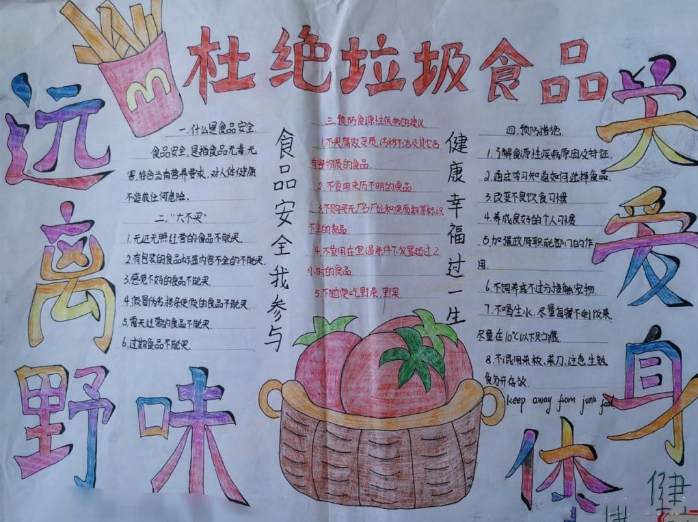 杜绝垃圾食品
远离野味
关爱身体
健
食品安全我参与
健康幸福过一生
一.什么是食品安全.
食品安全,是指食品无毒、无
害,符合当前营养要求,对人体健康
不造成任何危险.
二."六不买"
1.无证无照经营的食品不能买.
2.有包装的食品标签内容不全的不能买.
3.感觉不好的食品不能买.
4.假冒伪劣
食品不能买.
5.露天经营的食品不能买.
6.过期食品不能买.
三.预防食源性疾病的建议
1.不买腐败变质、污秽不洁及其它含
有害物质的食品
2.不食用来历不明的食品
不全的食品.
4.不食用在室温条件下放置超过2
小时的食品
5.不随便吃野菜、野果
四.预防措施.
1.了解食源性疾病原因及特征.
2.通过学习知道如何选择食品.
3.改变不良饮食习惯
4.养成良好的个人习惯
5.加强政府职能部门的作
用.
6.不饲养或不过分接触宠物.
7.不喝生水,尽量
尽量在10℃以下
8.不混用菜板、菜刀,注意生熟
食分开存放.
keep away from junk